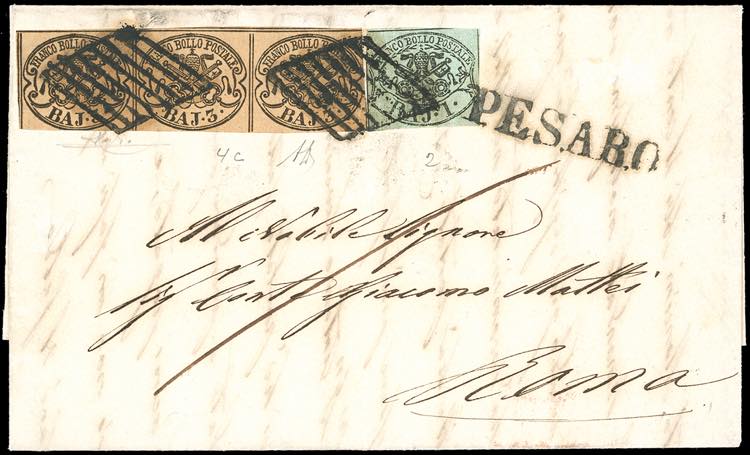 FRANCO BOLLO POSTALE
BAJ. 3.
FRANCO BOLLO POSTALE
BAJ. 3.
FRANCO BOLLO POSTALE
BAJ. 3.
FRANCO BOLLO POSTALE
BAJ. 1.
PESARO
4c
2
Al Nobile Signore
Sig Conte Giacomo Mattei
Roma